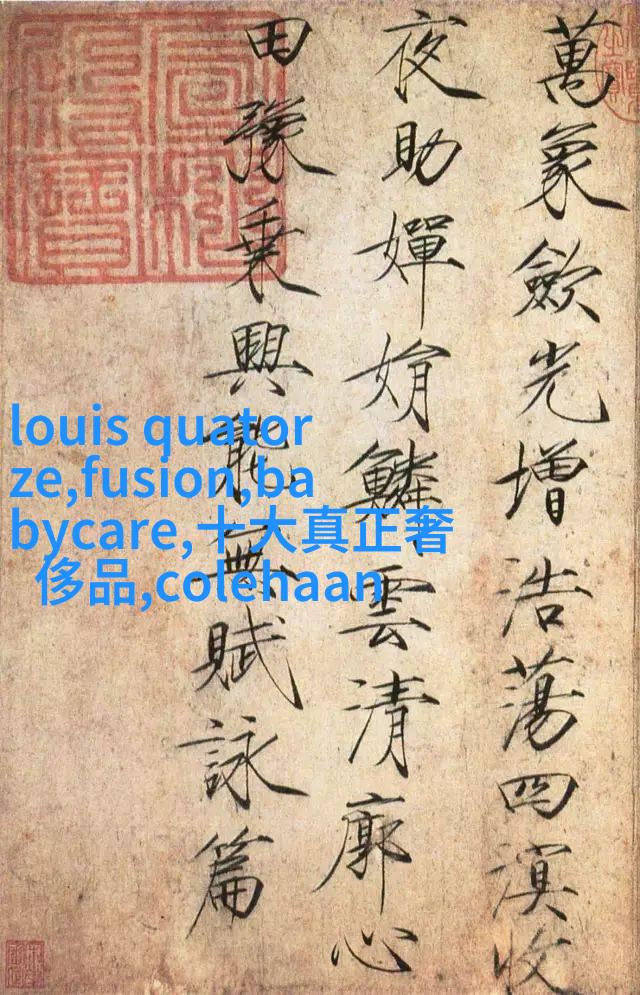 萬象歛光增浩蕩四溟收
夜助嬋娟鱗雲清廓心
田豫乘興能無賦詠篇
louis quator
ze,fusion,ba
bycare,十大真正奢
侈品,colehaan